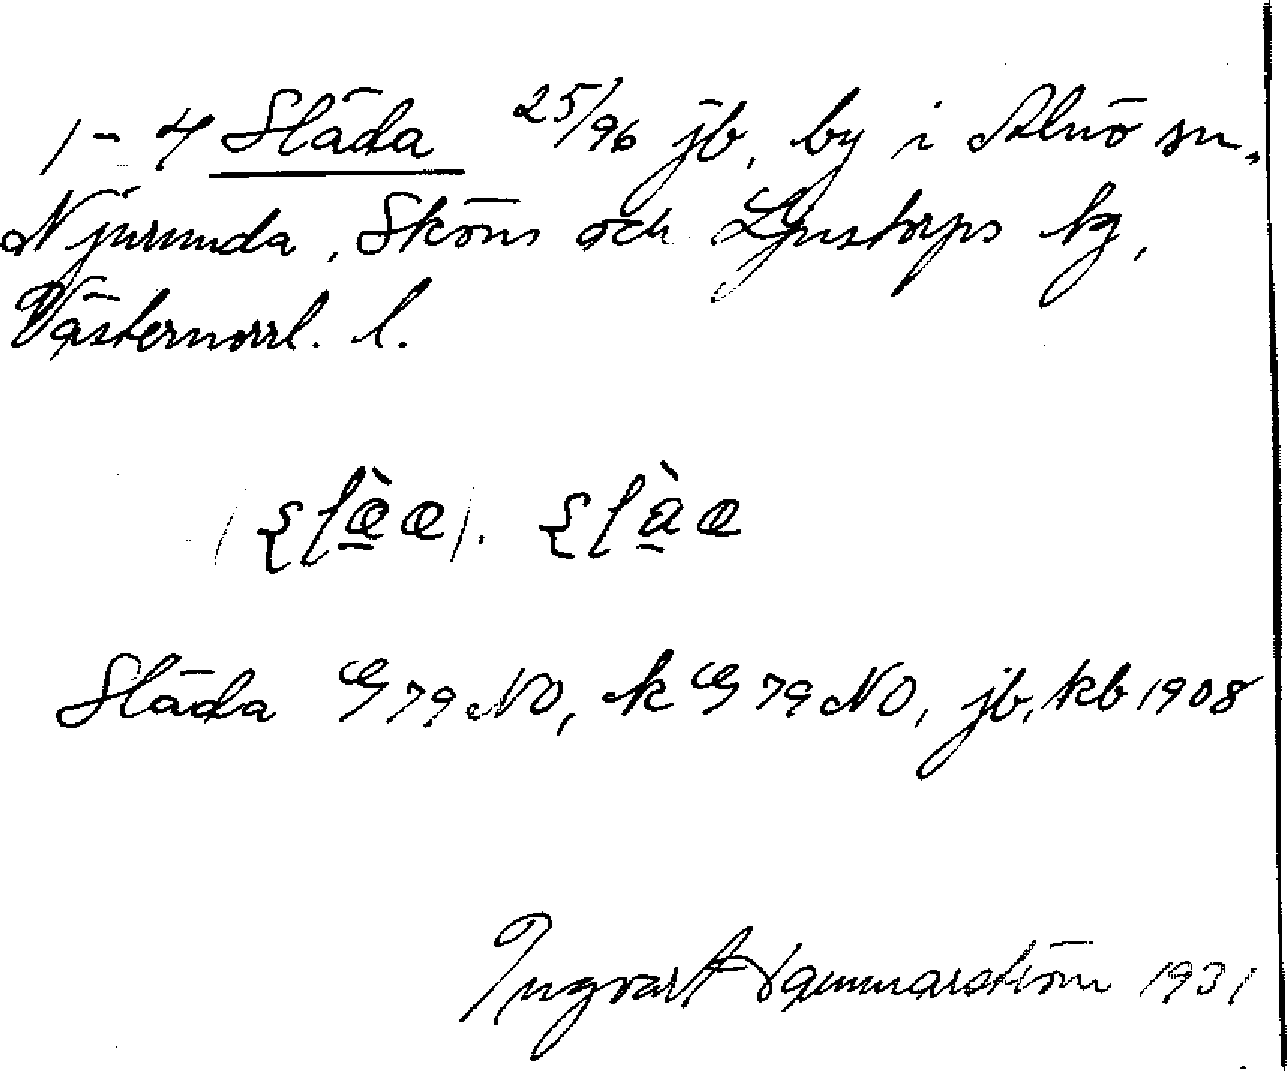 1-4 Släda 25/96 jb, by i Alnö sn.
Njurunda, Sköns och Ljustorps tg,
Västernorrl. l.
Släda G 79 NO, k G 79 NO, jb, kb 1908
Ingvart Hammarström 1931